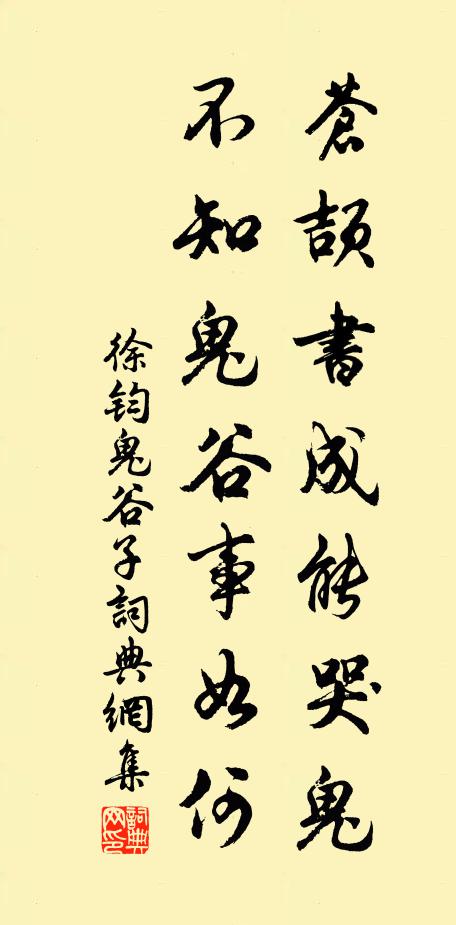 蒼頡書成能哭鬼
不知鬼谷事如何
徐鈞鬼谷子詞典網集
詞典網印